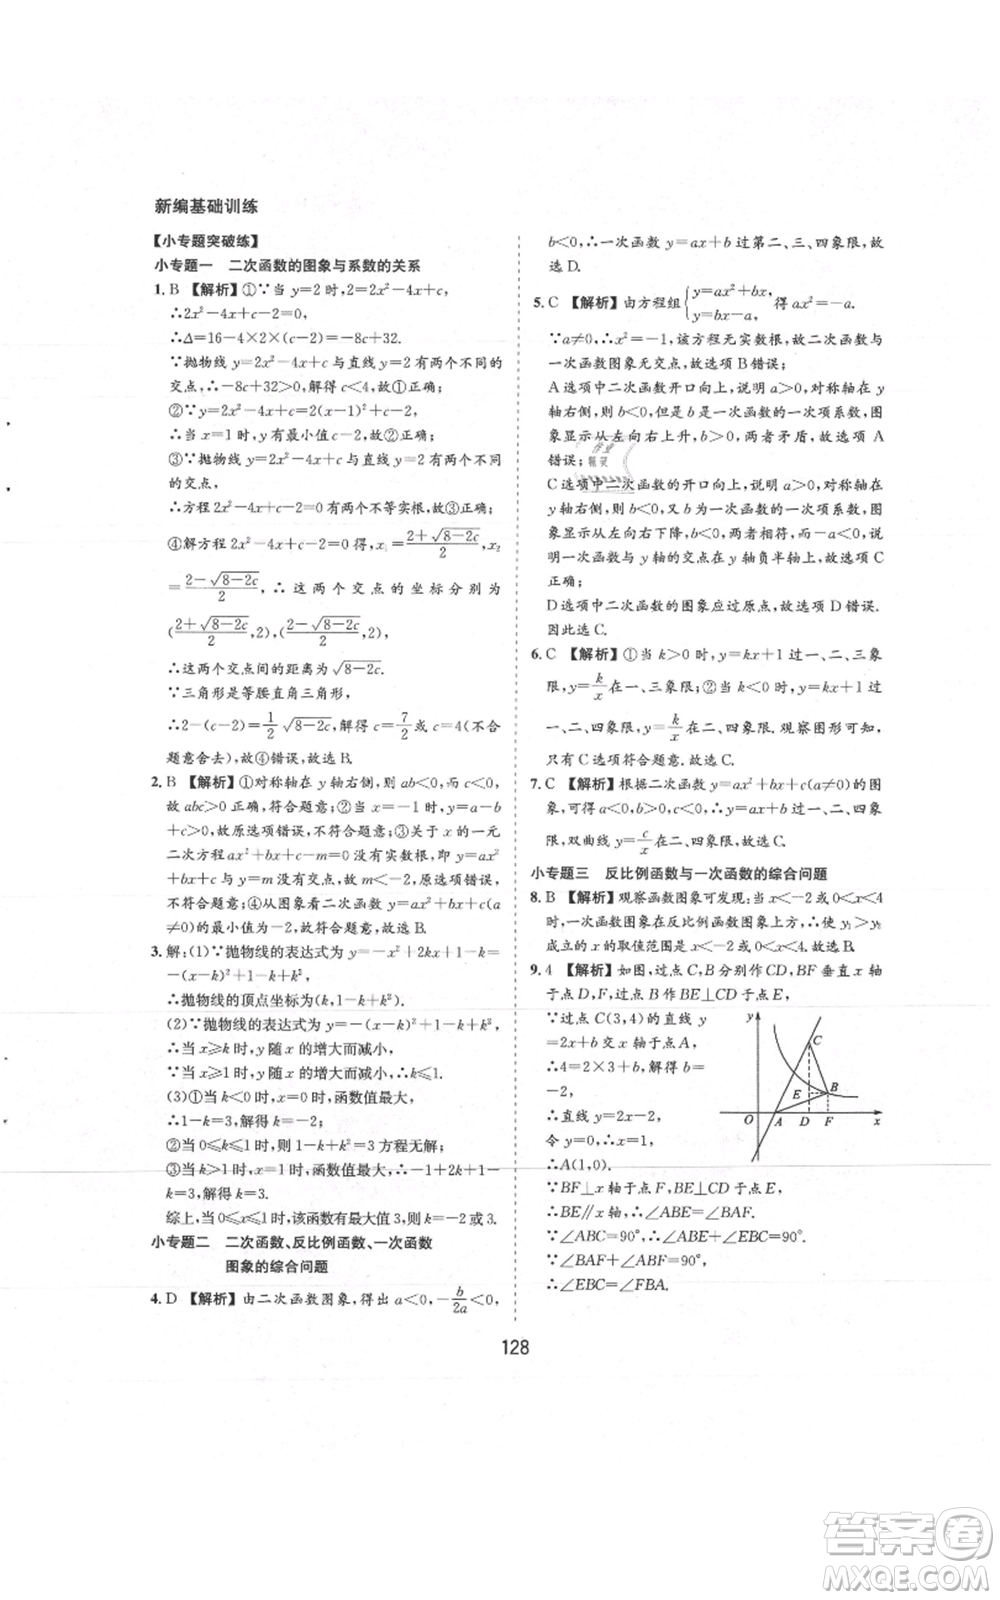 新编基础训练
【小专题突破练】
小专题一 二次函数的图象与系数的关系
1. B 【解析】①∵当 y=2 时,2=2x²-4x+c,
∴2x²-4x+c-2=0,
∴Δ=16-4×2×(c-2)=-8c+32,
∵抛物线 y=2x²-4x+c 与直线 y=2 有两个不同的
交点,∴-8c+32>0,解得 c<4,故①正确;
②∵y=2x²-4x+c=2(x-1)²+c-2,
∴当 x=1 时,y 有最小值 c-2,故②正确;
③∵抛物线 y=2x²-4x+c 与直线 y=2 有两个不同
的交点,
∴方程 2x²-4x+c-2=0 有两个不等实根,故③正确;
④解方程 2x²-4x+c-2=0 得,x₁=(2+√(8-2c))/2,x₂
=(2-√(8-2c))/2,∴这两个交点的坐标分别为
((2+√(8-2c))/2,2),((2-√(8-2c))/2,2),
∴这两个交点间的距离为 √(8-2c),
∵三角形是等腰直角三角形,
∴2-(c-2)=1/2 √(8-2c),解得 c=7/2 或 c=4(不合
题意舍去),故④错误,故选 B.
2. B 【解析】①对称轴在 y 轴右侧,则 ab<0,而 c>0,
故 abc>0 错误,不符合题意;②当 x=-1 时,y=a-b
+c>0,故原选项错误,不符合题意;③关于 x 的一元
二次方程 ax²+bx+c-m=0 没有实数根,则 y=ax²
+bx+c 与 y=m 没有交点,故 m<-2,原选项错误,
不符合题意;④从图象看二次函数 y=ax²+bx+c(a
≠0)的最小值为-2,故原选项正确,符合题意,故选 B.
3. 解:(1)∵抛物线的表达式为 y=-x²+2kx+1-k=
-(x-k)²+1-k+k²,
∴抛物线的顶点坐标为(k,1-k+k²).
(2)∵抛物线的表达式为 y=-(x-k)²+1-k+k²,
∴当 x≥k 时,y 随 x 的增大而减小,
∵当 x≥1 时,y 随 x 的增大而减小,∴k≤1.
(3)①当 k<0 时,则 x=0 时,函数值最大,
∴1-k=3,解得 k=-2.
②当 0≤k≤1 时,则 1-k+k²=3 方程无解;
③当 k>1 时,x=1 时,函数值最大,∴-1+2k+1-
k=3,解得 k=3.
综上,当 0≤x≤1 时,该函数有最大值 3,则 k=-2 或 3.
小专题二 二次函数、反比例函数、一次函数
图象的综合问题
4. D 【解析】由二次函数图象,得出 a<0,-b/2a<0,
b<0,∴一次函数 y=ax+b 过第二、三、四象限,故
选 D.
5. C 【解析】由方程组{y=ax²+bx, y=bx-a, 得 ax²=-a.
∵a≠0,∴x²=-1,该方程无实数根,故二次函数与
一次函数图象无交点,故选项 B 错误;
A 选项中二次函数开口向上,说明 a>0,对称轴在 y
轴右侧,则 b<0;但是 b 是一次函数的一次项系数,图
象显示从左向右上升,b>0,两者矛盾,故选项 A
错误;
C 选项中二次函数的开口向上,说明 a>0,对称轴在
y 轴右侧,则 b<0,又 b 为一次函数的一次项系数,图
象显示从左向右下降,b<0,两者相符,∵-a<0,说
明一次函数与 y 轴的交点在 y 轴负半轴上,故选项 C
正确;
D 选项中二次函数的图象应过原点,故选项 D 错误.
因此选 C.
6. C 【解析】①当 k>0 时,y=kx+1 过一、二、三象
限,y=k/x 在一、三象限;②当 k<0 时,y=kx+1 过
一、二、四象限,y=k/x 在二、四象限. 观察图形可知,
只有 C 选项符合题意.故选 C.
7. C 【解析】根据二次函数 y=ax²+bx+c(a≠0)的图
象,可得 a<0,b>0,c<0,∴y=ax+b 过一、二、四象
限,双曲线 y=c/x 在二、四象限,故选 C.
小专题三 反比例函数与一次函数的综合问题
8. B 【解析】观察函数图象可发现:当 x<-2 或 0<x<4
时,一次函数图象在反比例函数图象上方,∴使 y₁>y₂
成立的 x 的取值范围是 x<-2 或 0<x<4.故选 B.
9. 4 【解析】如图,过点 C,B 分别作 CD,BF 垂直 x 轴
于点 D,F,过点 B 作 BE⊥CD 于点 E,
∵过点 C(3,4)的直线 y
=2x+b 交 x 轴于点 A,
∴4=2×3+b,解得 b=
-2,
∴直线 y=2x-2,
令 y=0,解得 x=1,
∴A(1,0).
∵BF⊥x 轴于点 F,BE⊥CD 于点 E,
∴BE∥x 轴,∴∠ABE=∠BAF.
∵∠ABC=90°,∴∠ABE+∠EBC=90°.
∵∠BAF+∠FBA=90°,
∴∠EBC=∠FBA.
y
C
E
B
O
A
D
F
x
128
作业
精灵
答案卷
MXQE.COM